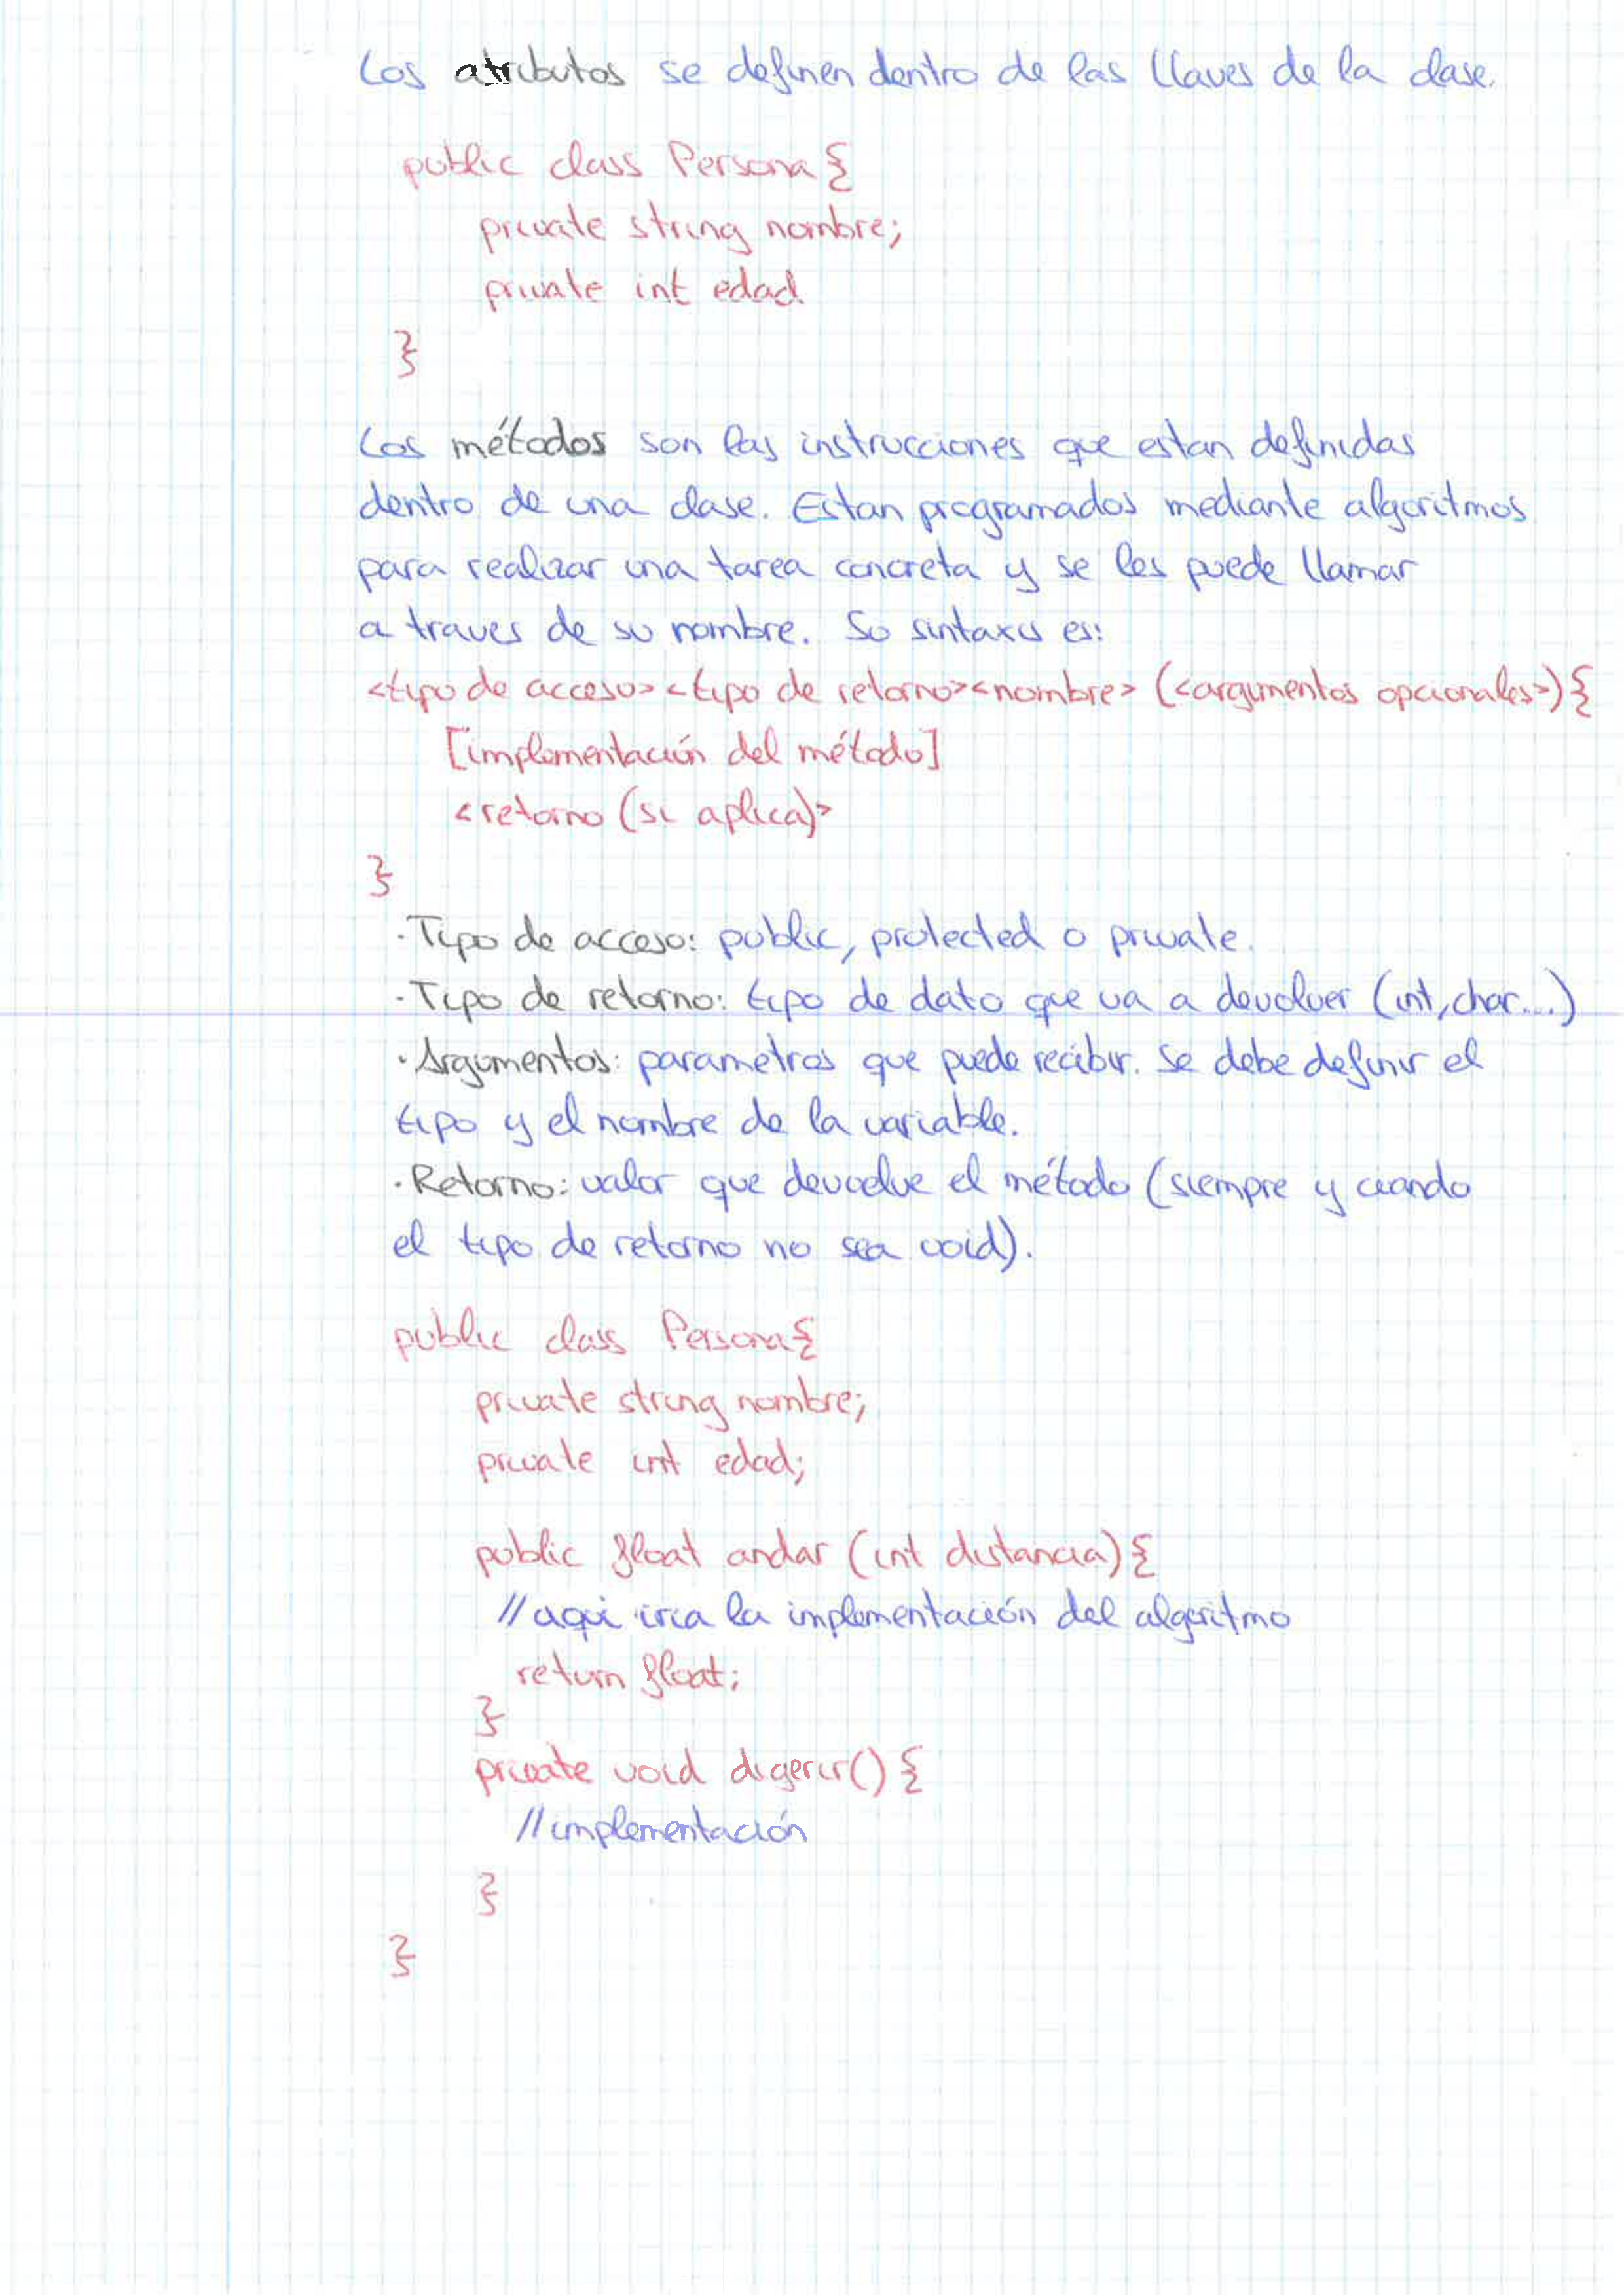 Los atributos se definen dentro de las llaves de la clase.
public class Persona {
private string nombre;
private int edad
}
Los métodos son las instrucciones que estan definidas
dentro de una clase. Estan programados mediante algoritmos
para realizar una tarea concreta y se les puede llamar
a traves de su nombre. Su sintaxis es:
<tipo de acceso> <tipo de retorno> <nombre> (<argumentos opcionales>) {
[implementación del método]
<retorno (si aplica)>
}
· Tipo de acceso: public, protected o private.
· Tipo de retorno: tipo de dato que va a devolver (int, char...)
· Argumentos: parametros que puede recibir. Se debe definir el
tipo y el nombre de la variable.
· Retorno: valor que devuelve el método (siempre y cuando
el tipo de retorno no sea void).
public class Persona {
private string nombre;
private int edad;
public float andar (int distancia) {
// aqui iria la implementación del algoritmo
return float;
}
private void digerir() {
// implementación
}
}